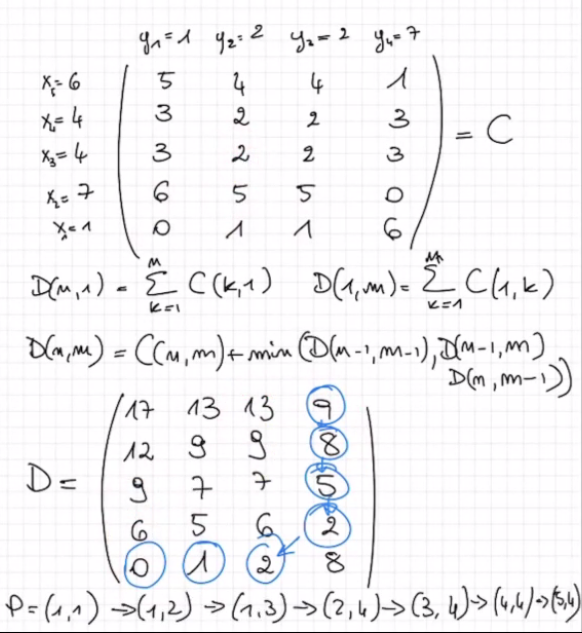 y₁=1 y₂=2 y₃=2 y₄=7
x₅=6 5 4 4 1
x₄=4 3 2 2 3
x₃=4 3 2 2 3 = C
x₂=7 6 5 5 0
x₁=1 0 1 1 6
D(n,1) = ∑_{k=1}^{n} C(k,1) D(1,m) = ∑_{k=1}^{m} C(1,k)
D(n,m) = C(n,m) + min(D(n-1,m-1), D(n-1,m)
D(n,m-1))
17 13 13 9
12 9 9 8
D = 9 7 7 5
6 5 6 2
0 1 2 8
P = (1,1) → (1,2) → (1,3) → (2,4) → (3,4) → (4,4) → (5,4)